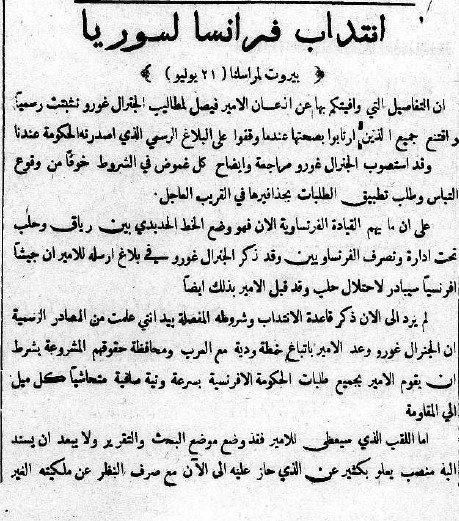 انتداب فرانسا لسوريا
بيروت لمراسلنا ( ٢١ يوليو )
ان التفاصيل التي وافيتكم بها عن اذعان الامير فيصل لمطاليب الجنرال غورو تثبتت رسمياً
واقتنع جميع الذين ارتابوا بصحتها عندما وقفوا على البلاغ الرسمي الذي اصدرته الحكومة عندنا
وقد استصوب الجنرال غورو مراجعة وايضاح كل غموض في الشروط خوفاً من وقوع
التباس وطلب تطبيق الطلبات بحذافيرها في القريب العاجل.
على ان ما يهم القيادة الفرنساوية الان فهو وضع الخط الحديدي بين رياق وحلب
تحت ادارة وتصرف الفرنساويين وقد ذكر الجنرال غورو في بلاغ ارسله للامير ان جيشاً
افرنسياً سيبادر لاحتلال حلب وقد قبل الامير بذلك ايضاً
لم يرد الى الان ذكر قاعدة الانتداب وشروطه المفصلة بيد انني علمت من المصادر الرسمية
ان الجنرال غورو وعد الامير باتباع خطة ودية مع العرب ومحافظة حقوقهم المشروعة بشرط
ان يقوم الامير بجميع طلبات الحكومة الافرنسية بسرعة ونية صافية متحاشياً كل ميل
الى المقاومة
اما اللقب الذي سيعطى للامير فقد وضع موضع البحث والتقرير ولا يبعد ان يسند
اليه منصب يعلو بكثير عن الذي حاز عليه الى الآن مع صرف النظر عن ملكيته الغير